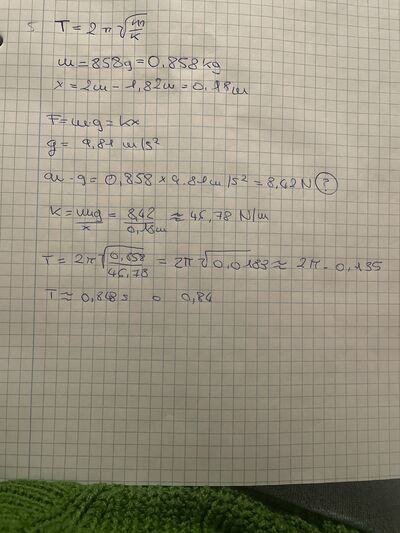 5 T = 2π√m/k
m = 858g = 0.858kg
x = 2m - 1,82m = 0,18m
F = m·g = kx
g = 9.81 m/s²
m·g = 0,858 × 9.81 m/s² = 8,42 N ?
K = mg/x = 8,42/0,18m ≈ 46,78 N/m
T = 2π√0,858/46,78 = 2π√0,0183 ≈ 2π · 0,135
T ≈ 0,848 s o 0,84